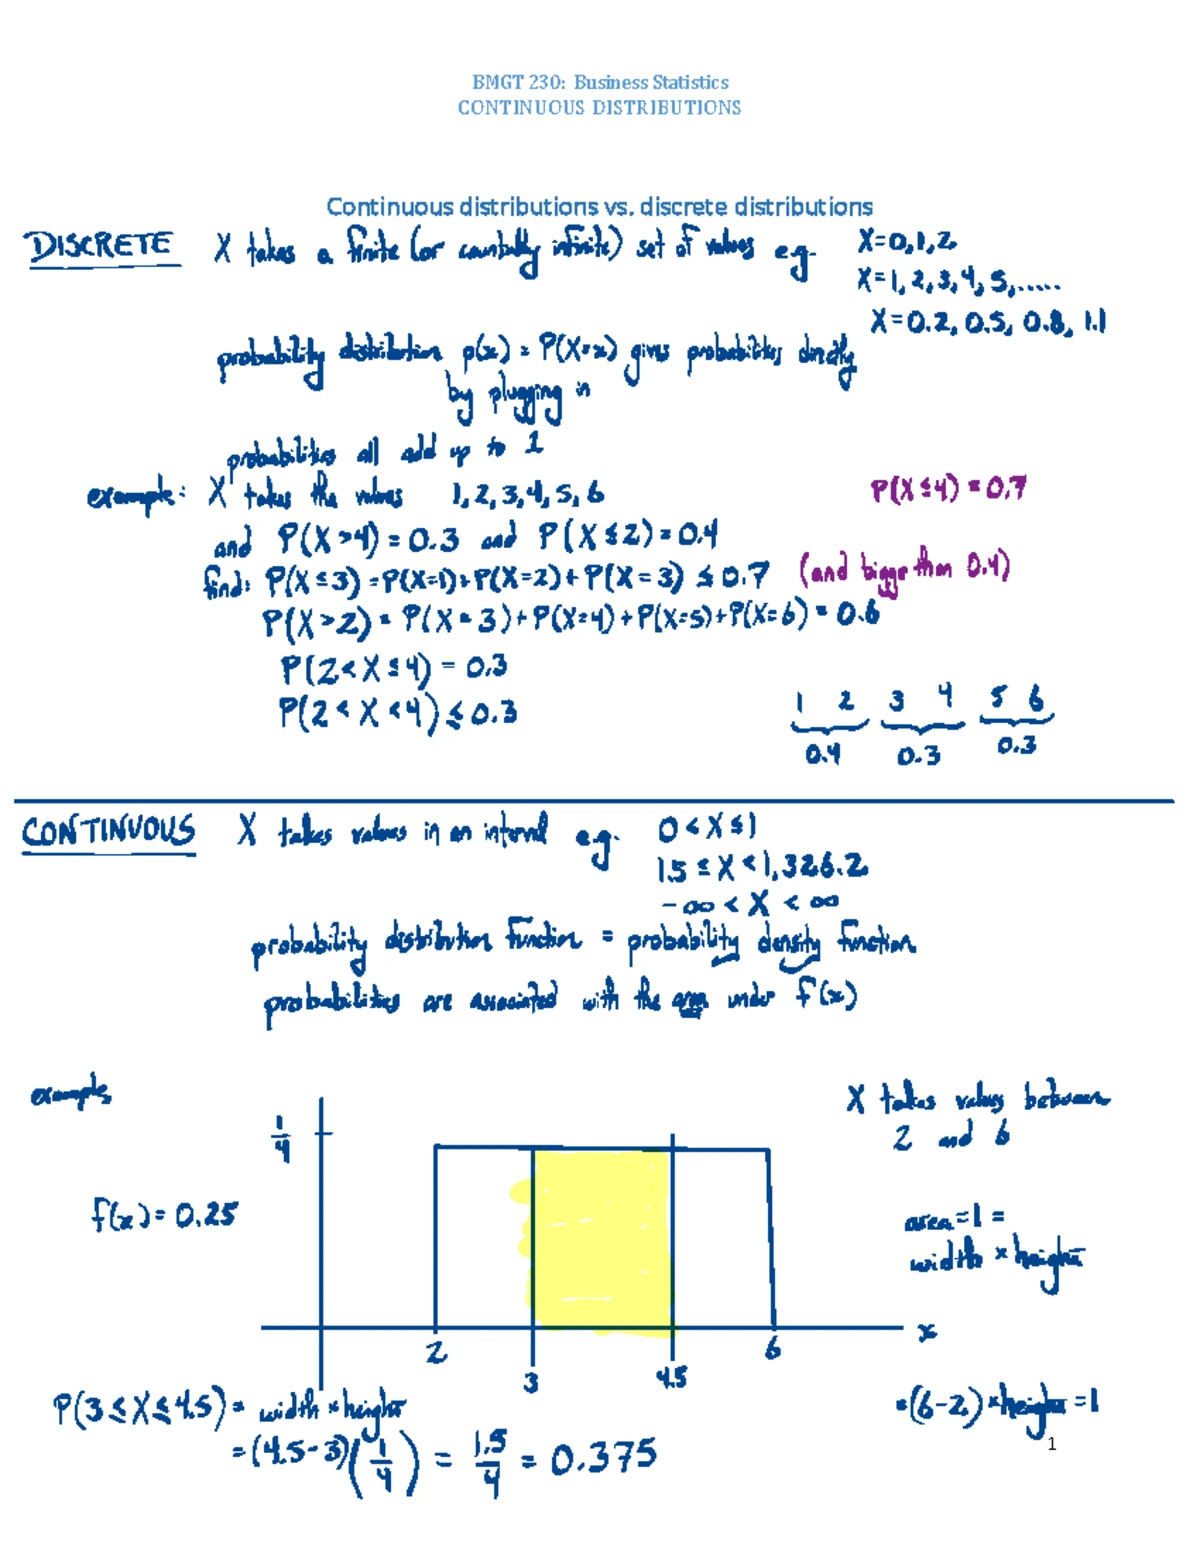 BMGT 230: Business Statistics
CONTINUOUS DISTRIBUTIONS
Continuous distributions vs. discrete distributions
DISCRETE X takes a finite (or countably infinite) set of values e.g. X=0,1,2
X=1, 2, 3, 4, 5, .....
X=0.2, 0.5, 0.8, 1.1
probability distribution p(x) = P(X=x) gives probabilities directly
by plugging in
probabilities all add up to 1
example: X takes the values 1, 2, 3, 4, 5, 6
P(X≤4) = 0.7
and P(X>4) = 0.3 and P(X≤2) = 0.4
find: P(X≤3) = P(X=1) + P(X=2) + P(X=3) ≤ 0.7 (and bigger than 0.4)
P(X>2) = P(X=3) + P(X=4) + P(X=5) + P(X=6) = 0.6
P(2<X≤4) = 0.3
P(2<X<4) ≤ 0.3
1 2 3 4 5 6
0.4 0.3 0.3
CONTINUOUS X takes values in an interval e.g. 0<X≤1
1.5≤X<1,326.2
-∞<X<∞
probability distribution function = probability density function
probabilities are associated with the area under f(x)
example
X takes values between
2 and 6
1/4
f(x)=0.25
area=1=
width × height
x
2 3 4.5 6
P(3≤X≤4.5) = width × height
=(6-2)×height=1
=(4.5-3)(1/4) = 1.5/4 = 0.375
1